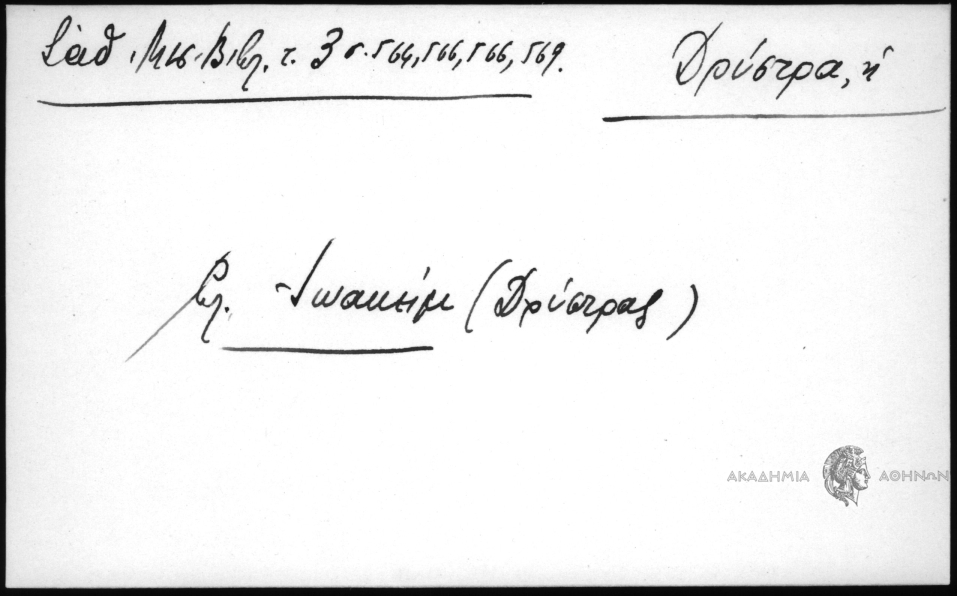 Σάθ. Μεσ. Βιβλ. τ. 3 σ. 564, 566, 566, 569.
Δρύστρα, ἡ
βλ. Ἰωακείμ (Δρύστρας)
ΑΚΑΔΗΜΙΑ ΑΘΗΝΩΝ